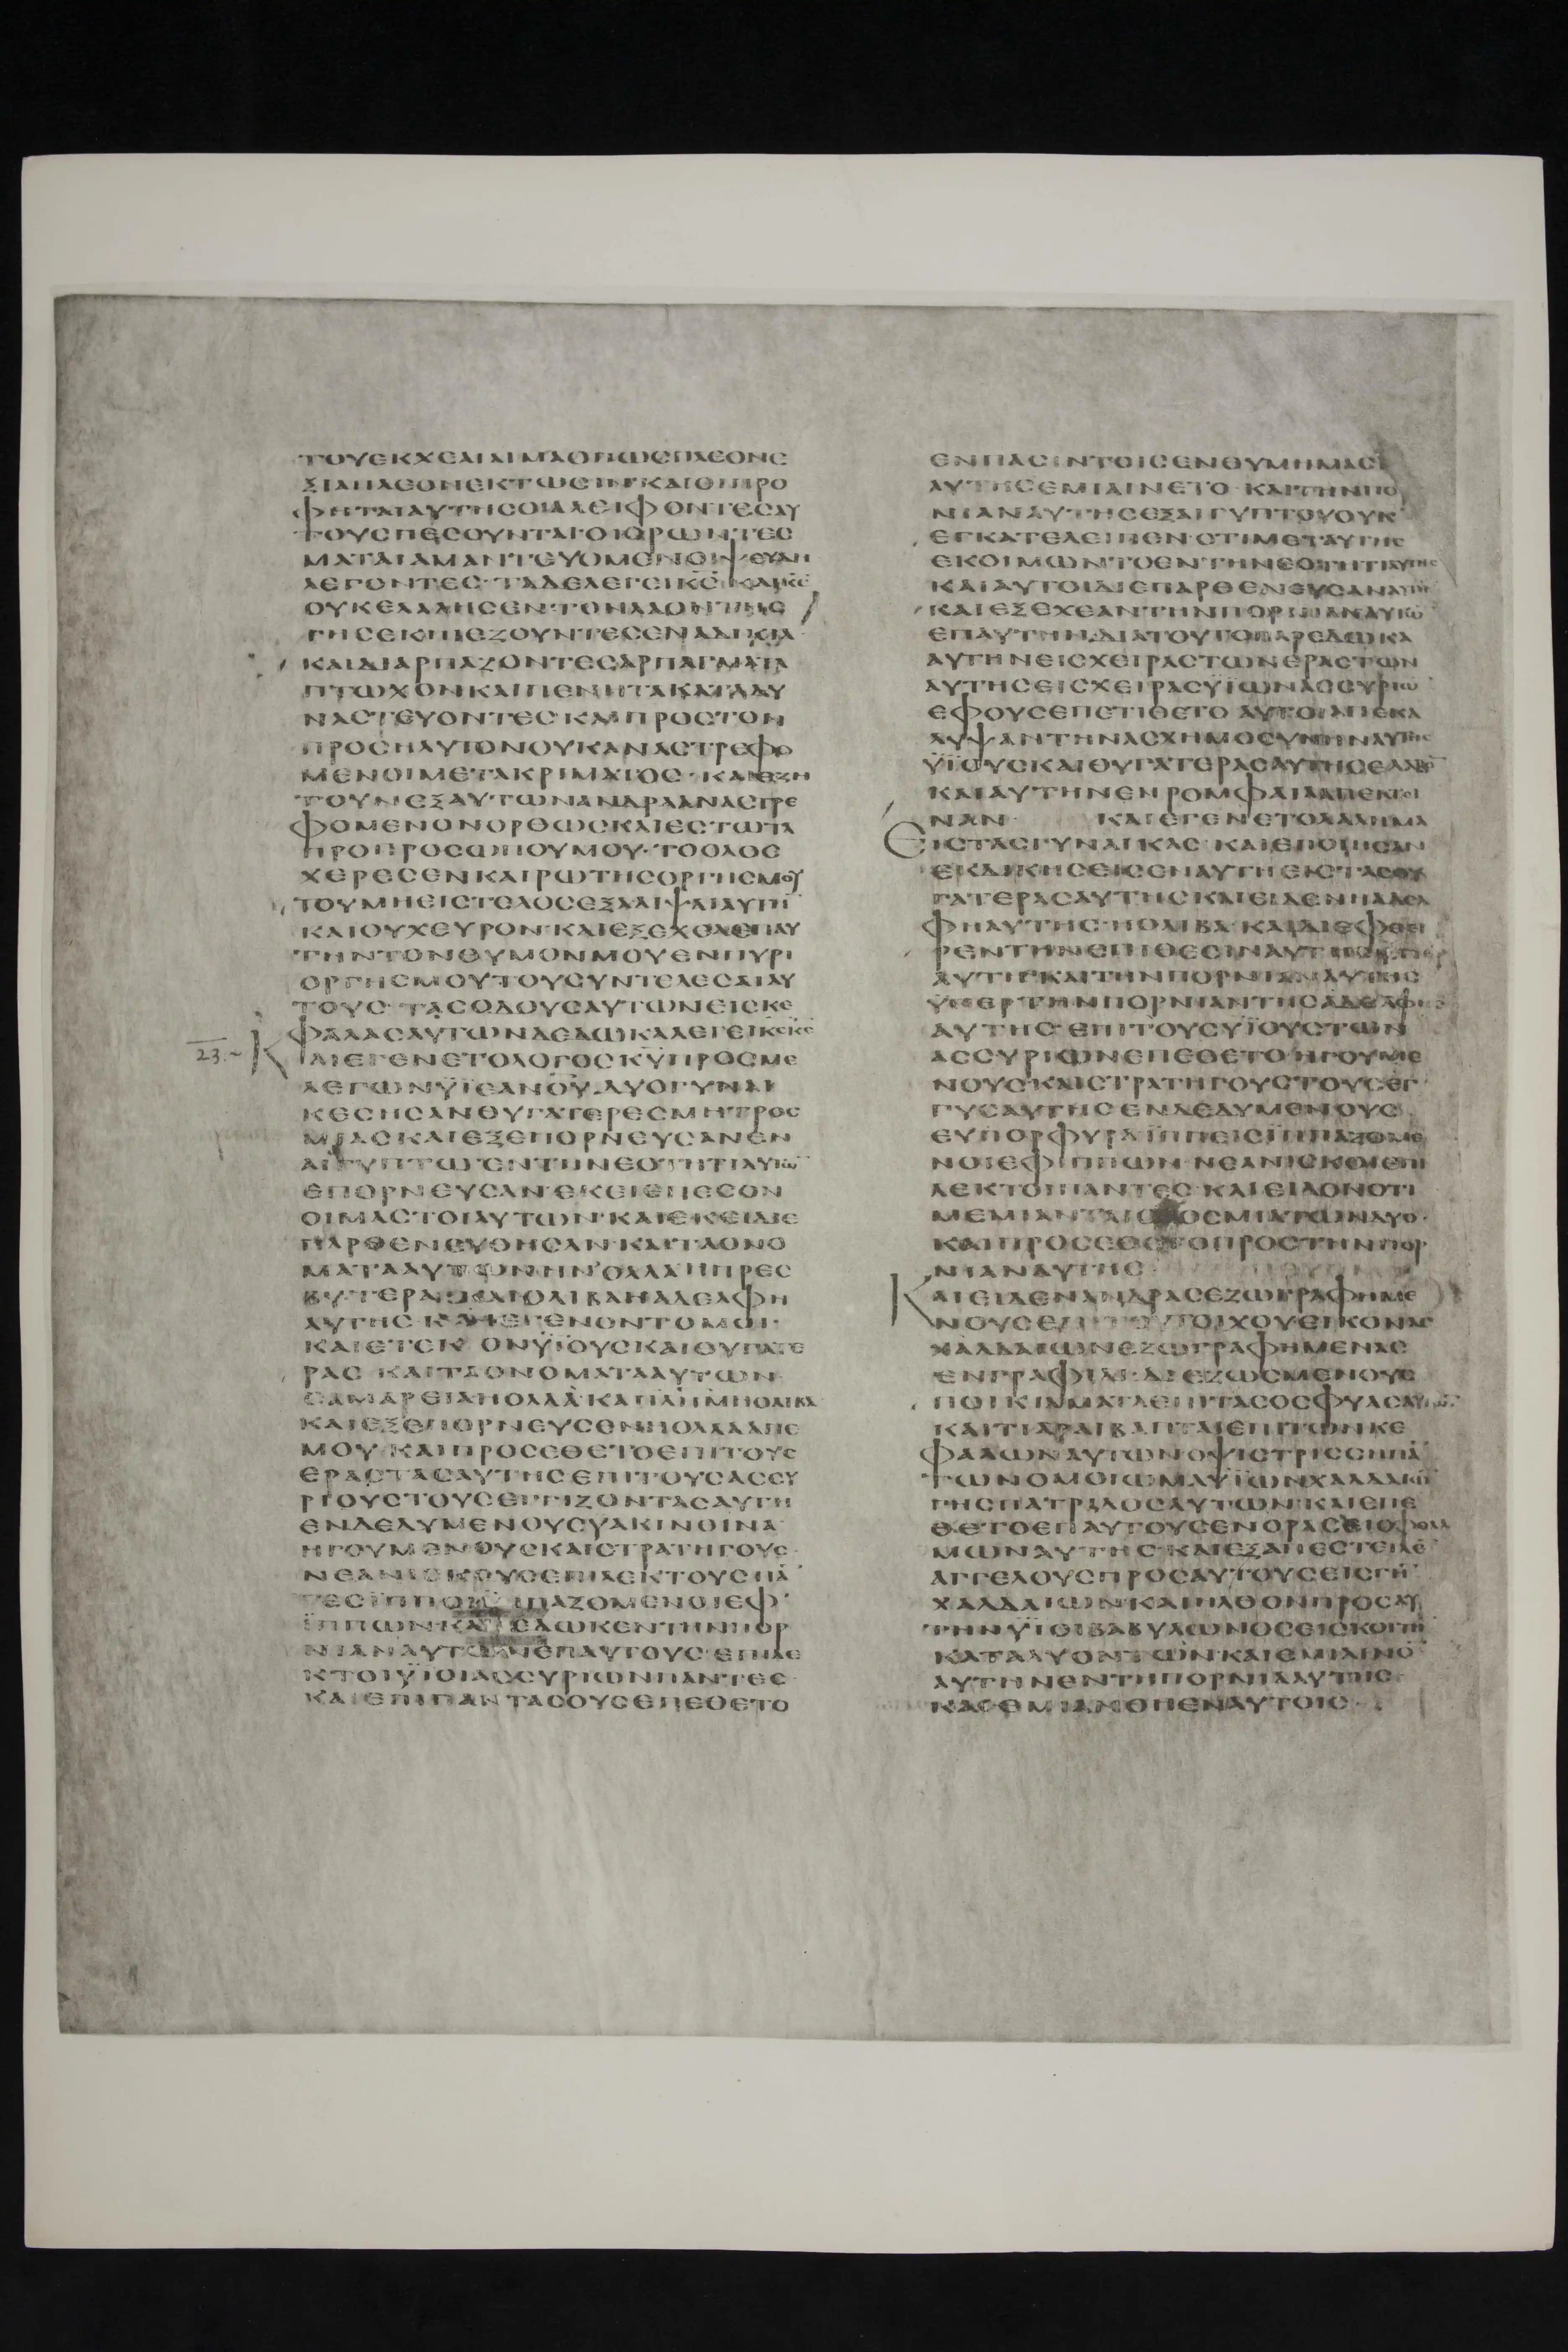 ΤΟΥΕΚΧΕΑΙΑΙΜΑΟΠΩϹΠΛΕΟΝΕ
ΞΙΑΠΛΕΟΝΕΚΤΩϹΙΝ ΚΑΙΟΙΠΡΟ
ΦΗΤΑΙΑΥΤΗϹΟΙΑΛΕΙΦΟΝΤΕϹΑΥ
ΤΟΥϹΠΕϹΟΥΝΤΑΙ ΟΙΟΡΩΝΤΕϹ
ΜΑΤΑΙΑΜΑΝΤΕΥΟΜΕΝΟΙΨΕΥΔΗ
ΛΕΓΟΝΤΕϹ ΤΑΔΕΛΕΓΕΙΚϹ ΚΑΙΚϹ
ΟΥΚΕΛΑΛΗϹΕΝ ΤΟΝΛΑΟΝΤΗϹ
ΓΗϹΕΚΠΙΕΖΟΥΝΤΕϹΕΝΑΔΙΚΙΑ
ΚΑΙΔΙΑΡΠΑΖΟΝΤΕϹΑΡΠΑΓΜΑΤΑ
ΠΤΩΧΟΝΚΑΙΠΕΝΗΤΑΚΑΤΑΔΥ
ΝΑϹΤΕΥΟΝΤΕϹΚΑΙΠΡΟϹΤΟΝ
ΠΡΟϹΗΛΥΤΟΝΟΥΚΑΝΑϹΤΡΕΦΟ
ΜΕΝΟΙΜΕΤΑΚΡΙΜΑΤΟϹ ΚΑΙΕΖΗ
ΤΟΥΝΕΞΑΥΤΩΝΑΝΔΡΑΑΝΑϹΤΡΕ
ΦΟΜΕΝΟΝΟΡΘΩϹΚΑΙΕϹΤΩΤΑ
ΠΡΟΠΡΟϹΩΠΟΥΜΟΥ ΤΟΟΛΟϹ
ΧΕΡΕϹΕΝΚΑΙΡΩΤΗϹΟΡΓΗϹΜΟΥ
ΤΟΥΜΗΕΙϹΤΕΛΟϹΕΞΑΛΙΨΑΙΑΥΤΗ
ΚΑΙΟΥΧΕΥΡΟΝ ΚΑΙΕΞΕΧΕΑΕΠΑΥ
ΤΗΝΤΟΝΘΥΜΟΝΜΟΥΕΝΠΥΡΙ
ΟΡΓΗϹΜΟΥΤΟΥϹΥΝΤΕΛΕϹΑΙΑΥ
ΤΟΥϹ ΤΑϹΟΔΟΥϹΑΥΤΩΝΕΙϹΚΕ
ΦΑΛΑϹΑΥΤΩΝΔΕΔΩΚΑΛΕΓΕΙΚϹΚϹ
23. ΚΑΙΕΓΕΝΕΤΟΛΟΓΟϹΚΥΠΡΟϹΜΕ
ΛΕΓΩΝΫΙΕΑΝΟΥ ΔΥΟΓΥΝΑΙ
ΚΕϹΗϹΑΝΘΥΓΑΤΕΡΕϹΜΗΤΡΟϹ
ΜΙΑϹΚΑΙΕΞΕΠΟΡΝΕΥϹΑΝΕΝ
ΑΙΓΥΠΤΩ ΕΝΤΗΝΕΟΤΗΤΙΑΥΤΩ
ΕΠΟΡΝΕΥϹΑΝ ΕΚΕΙΕΠΕϹΟΝ
ΟΙΜΑϹΤΟΙΑΥΤΩΝ ΚΑΙΕΚΕΙΔΙΕ
ΠΑΡΘΕΝΕΥΘΗϹΑΝ ΚΑΙΤΑΟΝΟ
ΜΑΤΑΑΥΤΩΝΗΝ ΟΛΛΑΗΠΡΕϹ
ΒΥΤΕΡΑ ΚΑΙΟΛΙΒΑΗΑΔΕΛΦΗ
ΑΥΤΗϹ ΚΑΙΕΓΕΝΟΝΤΟΜΟΙ
ΚΑΙΕΤΕΚΟΝΫΙΟΥϹΚΑΙΘΥΓΑΤΕ
ΡΑϹ ΚΑΙΤΑΟΝΟΜΑΤΑΑΥΤΩΝ
ϹΑΜΑΡΕΙΑΗΟΛΛΑ ΚΑΙΙΛΗΜΗΟΛΙΒΑ
ΚΑΙΕΞΕΠΟΡΝΕΥϹΕΝΗΟΛΛΑΑΠΕ
ΜΟΥ ΚΑΙΠΡΟϹΕΘΕΤΟΕΠΙΤΟΥϹ
ΕΡΑϹΤΑϹΑΥΤΗϹΕΠΙΤΟΥϹΑϹϹΥ
ΡΙΟΥϹΤΟΥϹΕΓΓΙΖΟΝΤΑϹΑΥΤΗ
ΕΝΔΕΔΥΜΕΝΟΥϹΥΑΚΙΝΘΙΝΑ
ΗΓΟΥΜΕΝΟΥϹΚΑΙϹΤΡΑΤΗΓΟΥϹ
ΝΕΑΝΙϹΚΟΥϹΕΠΙΛΕΚΤΟΥϹΠΑ
ΤΕϹΪΠΠΟΙ ΪΠΑΖΟΜΕΝΟΙΕΦ
ΪΠΠΩΝΚΑΙΕΔΩΚΕΝΤΗΝΠΟΡ
ΝΙΑΝΑΥΤΩΝΕΠΑΥΤΟΥϹ ΕΠΙΛΕ
ΚΤΟΙΫΙΟΙΑϹϹΥΡΙΩΝΠΑΝΤΕϹ
ΚΑΙΕΠΙΠΑΝΤΑϹΟΥϹΕΠΕΘΕΤΟ
ΕΝΠΑϹΙΝΤΟΙϹΕΝΘΥΜΗΜΑϹΙ
ΑΥΤΗϹΕΜΙΑΙΝΕΤΟ ΚΑΙΤΗΝΠΟ
ΝΙΑΝΑΥΤΗϹΕΞΑΙΓΥΠΤΟΥΟΥΚ
ΕΓΚΑΤΕΛΕΙΠΕΝ ΟΤΙΜΕΤΑΥΤΗϹ
ΕΚΟΙΜΩΝΤΟΕΝΤΗΝΕΟΤΗΤΙΑΥΤΗϹ
ΚΑΙΑΥΤΟΙΔΙΕΠΑΡΘΕΝΕΥϹΑΝΑΥΤΗ
ΚΑΙΕΞΕΧΕΑΝΤΗΝΠΟΡΝΙΑΝΑΥΤΩ
ΕΠΑΥΤΗΝ ΔΙΑΤΟΥΤΟΠΑΡΕΔΩΚΑ
ΑΥΤΗΝΕΙϹΧΕΙΡΑϹΤΩΝΕΡΑϹΤΩΝ
ΑΥΤΗϹΕΙϹΧΕΙΡΑϹΫΙΩΝΑϹϹΥΡΙΩ
ΕΦΟΥϹΕΠΕΤΙΘΕΤΟ ΑΥΤΟΙΑΠΕΚΑ
ΛΥΨΑΝΤΗΝΑϹΧΗΜΟϹΥΝΗΝΑΥΤΗϹ
ΫΙΟΥϹΚΑΙΘΥΓΑΤΕΡΑϹΑΥΤΗϹΕΛΑΒΟ
ΚΑΙΑΥΤΗΝΕΝΡΟΜΦΑΙΑΑΠΕΚΤΙ
ΝΑΝ ΚΑΙΕΓΕΝΕΤΟΛΑΛΗΜΑ
ΕΙϹΤΑϹΓΥΝΑΙΚΑϹ ΚΑΙΕΠΟΙΗϹΑΝ
ΕΚΔΙΚΗϹΕΙϹΕΝΑΥΤΗΕΙϹΤΑϹΘΥ
ΓΑΤΕΡΑϹΑΥΤΗϹΚΑΙΕΙΔΕΝΗΑΔΕΛ
ΦΗΑΥΤΗϹ ΗΟΛΙΒΑ ΚΑΙΔΙΕΦΘΕΙ
ΡΕΝΤΗΝΕΠΙΘΕϹΙΝΑΥΤΗϹ
ΑΥΤΗ ΚΑΙΤΗΝΠΟΡΝΙΑΝΑΥΤΗϹ
ΫΠΕΡΤΗΝΠΟΡΝΙΑΝΤΗϹΑΔΕΛΦΗϹ
ΑΥΤΗϹ ΕΠΙΤΟΥϹΥΪΟΥϹΤΩΝ
ΑϹϹΥΡΙΩΝΕΠΕΘΕΤΟ ΗΓΟΥΜΕ
ΝΟΥϹΚΑΙϹΤΡΑΤΗΓΟΥϹΤΟΥϹΕΓ
ΓΥϹΑΥΤΗϹΕΝΔΕΔΥΜΕΝΟΥϹ
ΕΥΠΟΡΦΥΡΑΪΠΠΕΙϹΪΠΠΑΖΟΜΕ
ΝΟΙΕΦΙΠΠΩΝ ΝΕΑΝΙϹΚΟΙΕΠΙ
ΛΕΚΤΟΙΠΑΝΤΕϹ ΚΑΙΕΙΔΟΝΟΤΙ
ΜΕΜΙΑΝΤΑΙΟΔΟϹΜΙΑΤΩΝΔΥΟ
ΚΑΙΠΡΟϹΕΘΕΤΟΠΡΟϹΤΗΝΠΟΡ
ΝΙΑΝΑΥΤΗϹ
ΚΑΙΕΙΔΕΝΑΝΔΡΑϹΕΖΩΓΡΑΦΗΜΕ
ΝΟΥϹΕΠΙΤΟΥΤΟΙΧΟΥΕΙΚΟΝΑϹ
ΧΑΛΔΑΙΩΝΕΖΩΓΡΑΦΗΜΕΝΑϹ
ΕΝΓΡΑΦΙΔΙ ΔΙΕΖΩϹΜΕΝΟΥϹ
ΠΟΙΚΙΛΜΑΤΑΕΠΙΤΑϹΟϹΦΥΑϹΑΥΤΩ
ΚΑΙΤΙΑΡΑΙΒΑΠΤΑΙΕΠΙΤΩΝΚΕ
ΦΑΛΩΝΑΥΤΩΝΟΨΙϹΤΡΙϹϹΗΠΑ
ΤΩΝΟΜΟΙΩΜΑΫΪΩΝΧΑΛΔΑΙΩ
ΓΗϹΠΑΤΡΙΔΟϹΑΥΤΩΝ ΚΑΙΕΠΕ
ΘΕΤΟΕΠΑΥΤΟΥϹΕΝΟΡΑϹΕΙΟΦΘΑΛ
ΜΩΝΑΥΤΗϹ ΚΑΙΕΞΑΠΕϹΤΕΙΛΕ
ΑΓΓΕΛΟΥϹΠΡΟϹΑΥΤΟΥϹΕΙϹΓΗ
ΧΑΛΔΑΙΩΝ ΚΑΙΗΛΘΟΝΠΡΟϹΑΥ
ΤΗΝΫΙΟΙΒΑΒΥΛΩΝΟϹΕΙϹΚΟΙΤΗ
ΚΑΤΑΛΥΟΝΤΩΝ ΚΑΙΕΜΙΑΙΝΟ
ΑΥΤΗΝΕΝΤΗΠΟΡΝΙΑΑΥΤΗϹ
ΚΑΙΕΜΙΑΝΘΗΕΝΑΥΤΟΙϹ